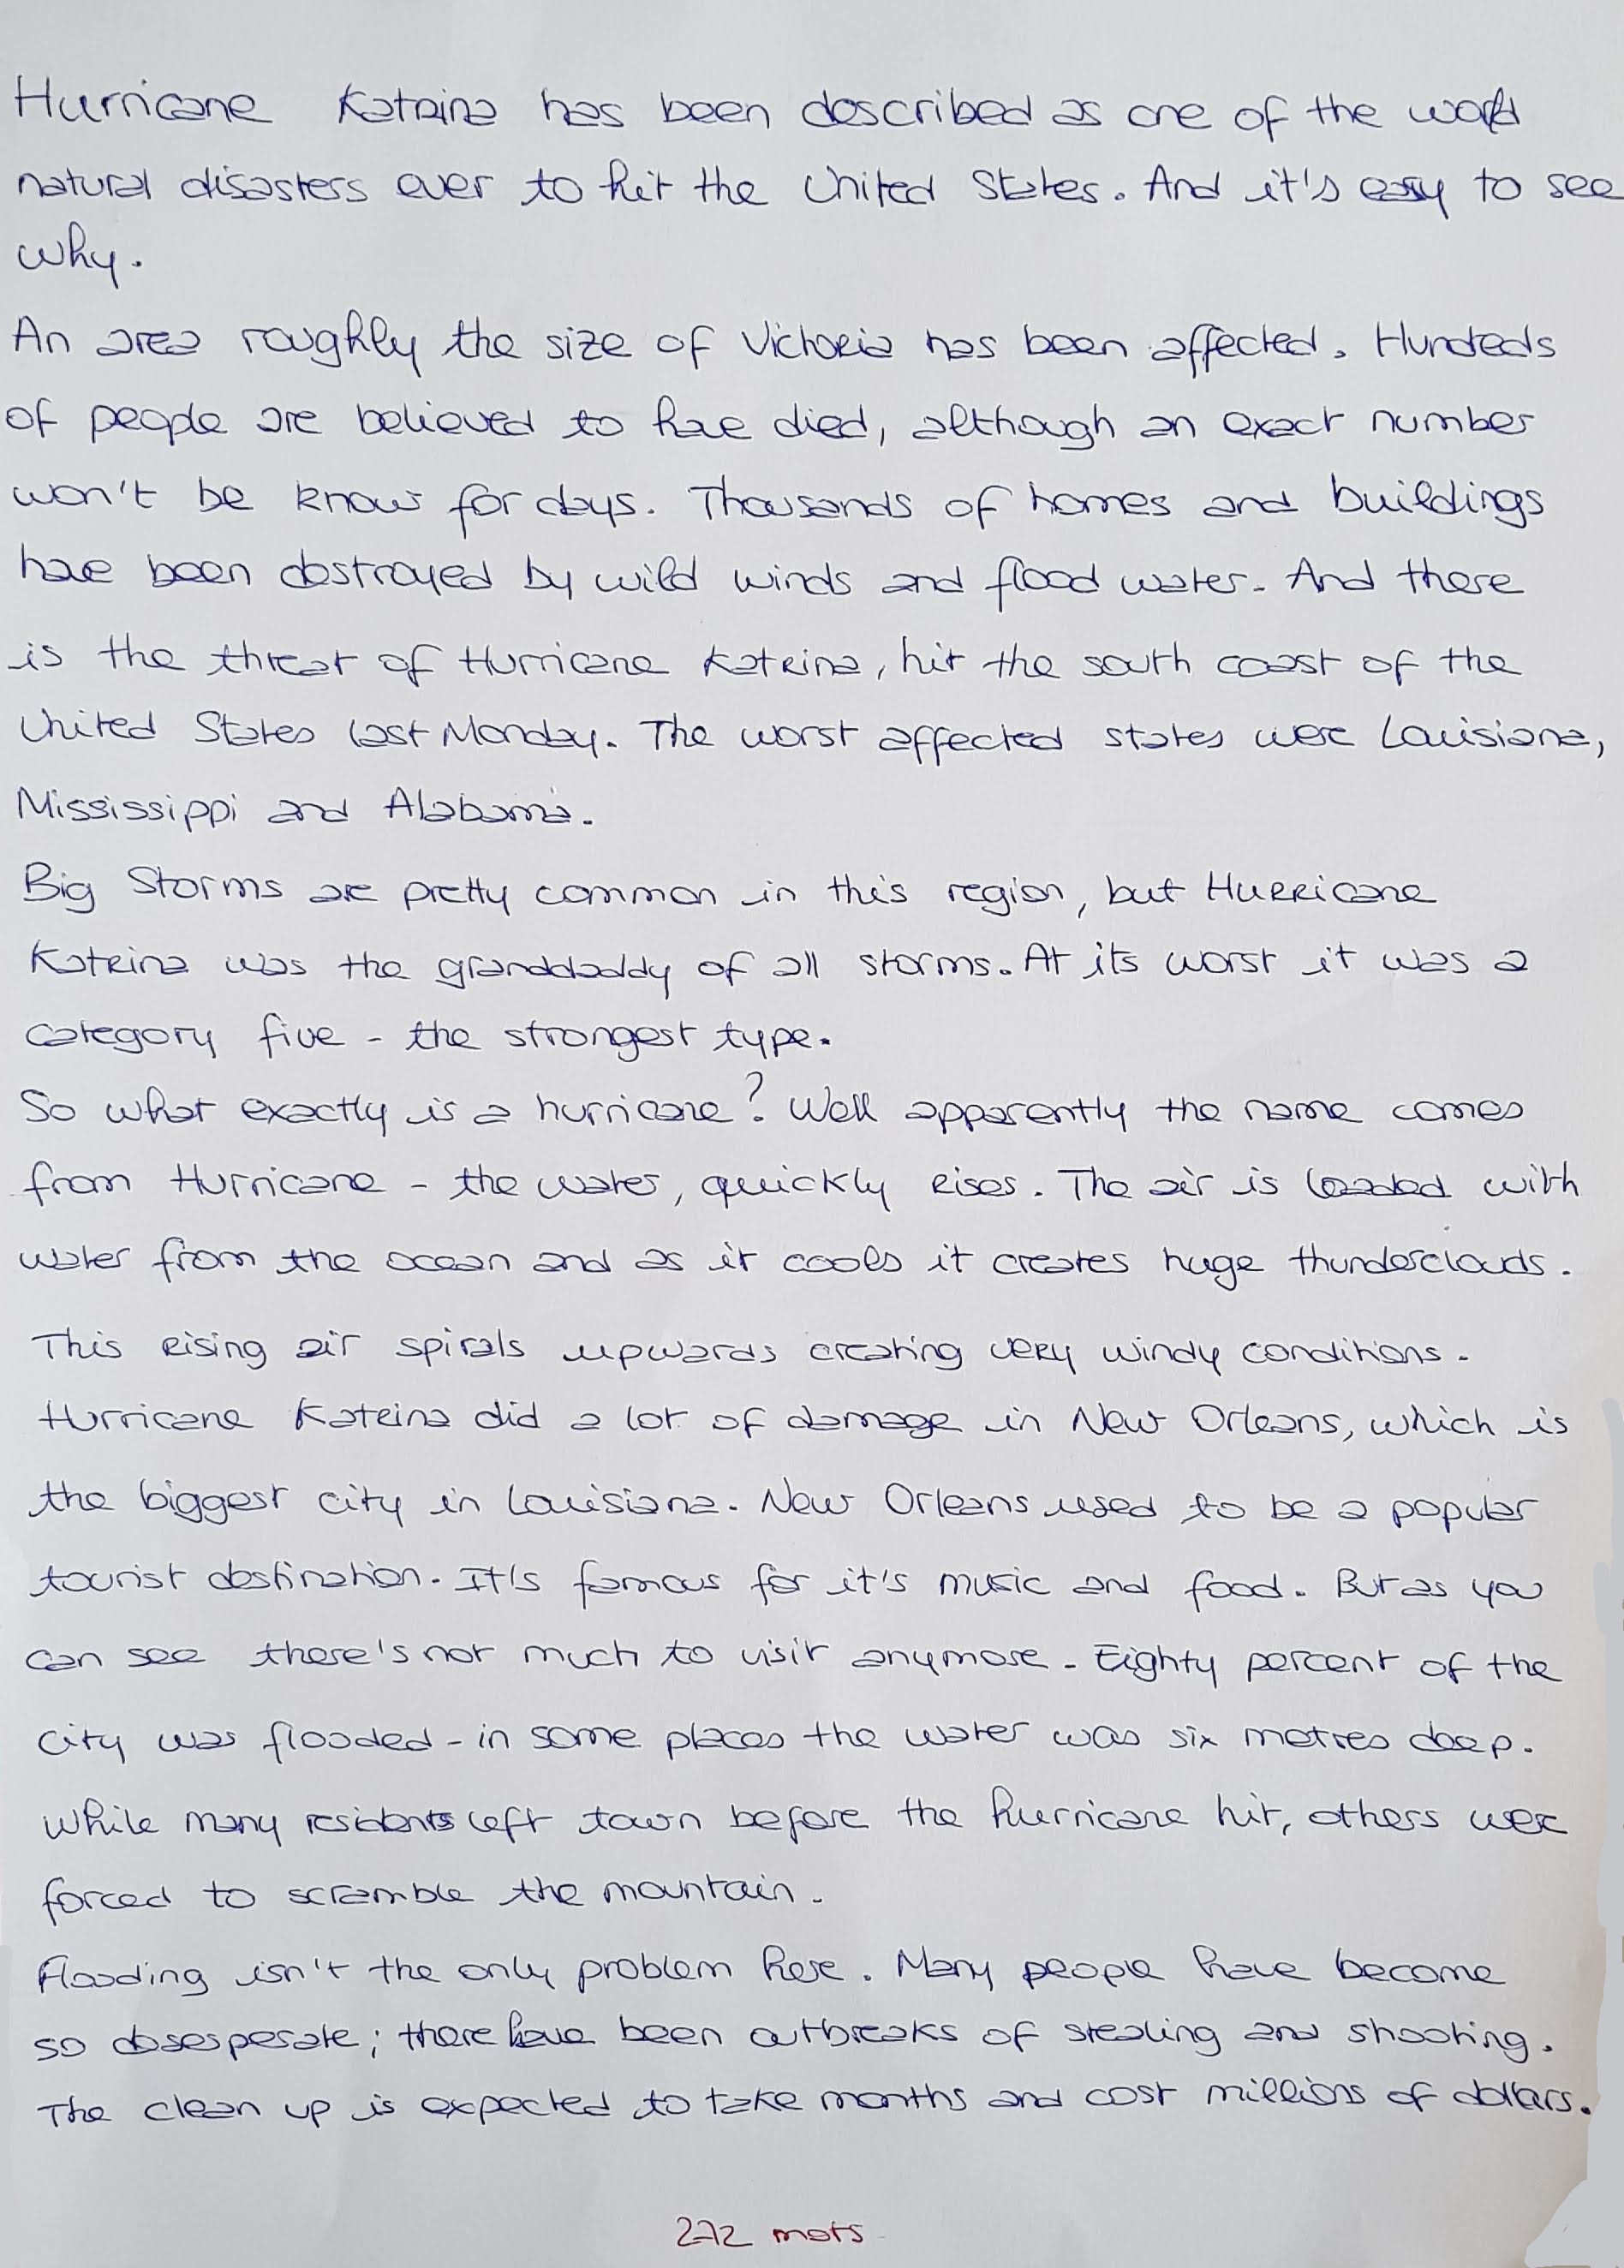 Hurricane Katrina has been described as one of the world
natural disasters ever to hit the United States. And it's easy to see
why.
An area roughly the size of Victoria has been affected. Hundreds
of people are believed to have died, although an exact number
won't be know for days. Thousands of homes and buildings
have been destroyed by wild winds and flood water. And there
is the threat of Hurricane Katrina, hit the south coast of the
United States last Monday. The worst affected states were Louisiana,
Mississippi and Alabama.
Big Storms are pretty common in this region, but Hurricane
Katrina was the granddaddy of all storms. At its worst it was a
category five - the strongest type.
So what exactly is a hurricane? Well apparently the name comes
from Hurricane - the water, quickly rises. The air is loaded with
water from the ocean and as it cools it creates huge thunderclouds.
This rising air spirals upwards creating very windy conditions.
Hurricane Katrina did a lot of damage in New Orleans, which is
the biggest city in Louisiana. New Orleans used to be a popular
tourist destination. It's famous for it's music and food. But as you
can see there's not much to visit anymore. Eighty percent of the
city was flooded - in some places the water was six metres deep.
While many residents left town before the hurricane hit, others were
forced to scramble the mountain.
Flooding isn't the only problem here. Many people have become
so desesperate; there have been outbreaks of stealing and shooting.
The clean up is expected to take months and cost millions of dollars.
272 mots